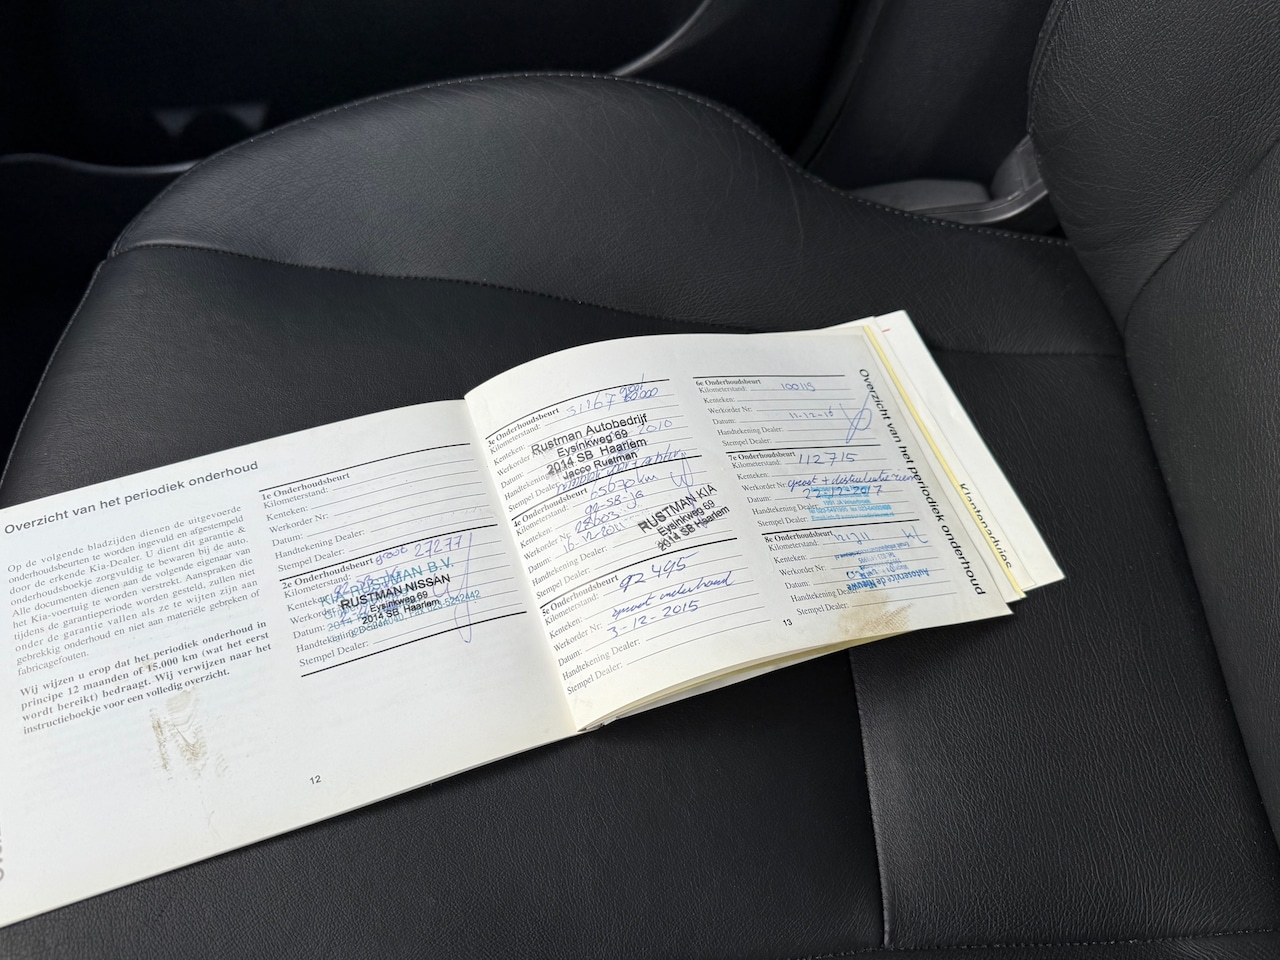 Overzicht van het periodiek onderhoud
Op de volgende bladzijden dienen de uitgevoerde
onderhoudsbeurten te worden ingevuld en afgestempeld
door de erkende Kia-Dealer. U dient dit garantie &
onderhoudsboekje zorgvuldig te bewaren bij de auto.
Alle documenten dienen aan de volgende eigenaar van
het Kia-voertuig te worden overlegd. Aanspraken die
tijdens de garantieperiode worden gesteld, zullen niet
onder de garantie vallen als ze te wijten zijn aan
gebrekkig onderhoud en niet aan materiële gebreken of
fabricagefouten.
Wij wijzen u erop dat het periodiek onderhoud in
principe 12 maanden of 15.000 km (wat het eerst
wordt bereikt) bedraagt. Wij verwijzen naar het
instructieboekje voor een volledig overzicht.
1e Onderhoudsbeurt
Kilometerstand:
Kenteken:
Werkorder Nr:
Datum:
Handtekening Dealer:
Stempel Dealer:
2e Onderhoudsbeurt groot 27277
Kilometerstand:
Kenteken:
Werkorder
Datum:
Handtekening Dealer:
Stempel Dealer:
KIA RUSTMAN B.V.
RUSTMAN NISSAN
Eysinkweg 69
2014 SB Haarlem
12
3e Onderhoudsbeurt
Kilometerstand: 51267
Kenteken:
Werkorder
Datum: 2010
Handtekening
Stempel Dealer
Rustman Autobedrijf
Eysinkweg 69
2014 SB Haarlem
Jacco Rustman
4e Onderhoudsbeurt
Kilometerstand: 65670km
Kenteken: 92-SB-
Werkorder Nr
Datum:
Handtekening Dealer:
Stempel Dealer:
RUSTMAN KIA
Eysinkweg 69
2014 SB Haarlem
5e Onderhoudsbeurt
Kilometerstand: 92495
Kenteken:
Werkorder Nr: groot onderhoud
Datum: 3-12-2015
Handtekening Dealer:
Stempel Dealer:
6e Onderhoudsbeurt
Kilometerstand: 100115
Kenteken:
Werkorder Nr:
Datum: 12-12-16
Handtekening Dealer:
Stempel Dealer:
7e Onderhoudsbeurt
Kilometerstand: 112715
Kenteken:
Werkorder Nr: groot + distributie riem
Datum: 22-12-2017
Handtekening Dealer:
Stempel Dealer:
8e Onderhoudsbeurt
Kilometerstand:
Kenteken:
Werkorder Nr:
Datum:
Handtekening Dealer:
Stempel Dealer:
Autoservice de
13
Overzicht van het periodiek onderhoud